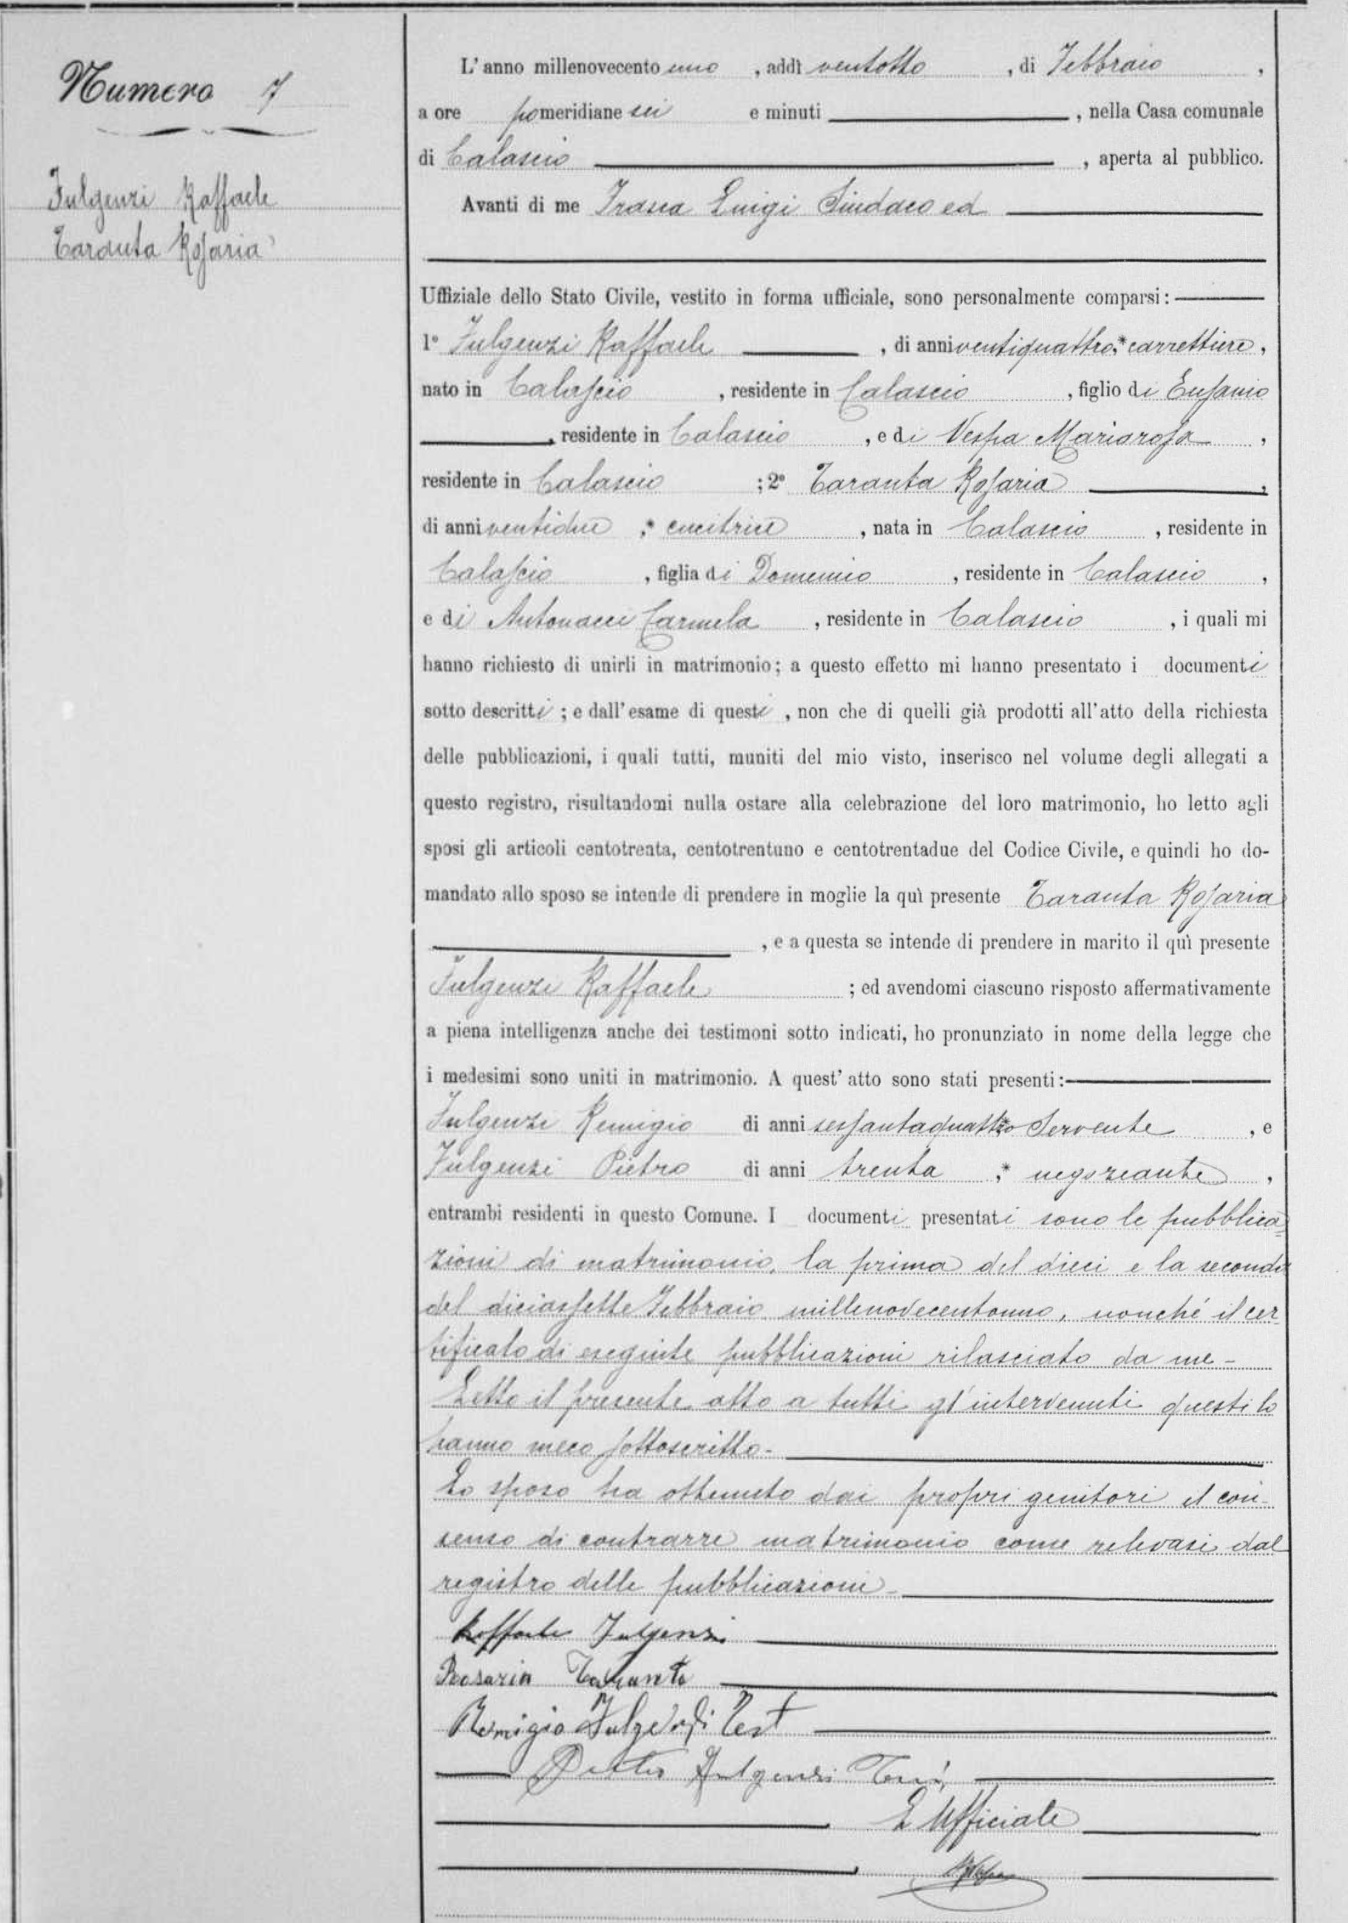 Numero 7
Fulgenzi Raffaele
Taranta Rosaria
L'anno millenovecento uno, addì ventotto, di Febbraio,
a ore pomeridiane sei e minuti, nella Casa comunale
di Calascio, aperta al pubblico.
Avanti di me Frasca Luigi Sindaco ed
Uffiziale dello Stato Civile, vestito in forma ufficiale, sono personalmente comparsi:
1º Fulgenzi Raffaele, di anni ventiquattro,* carrettiere,
nato in Calascio, residente in Calascio, figlio di Eusanio
, residente in Calascio, e di Vespa Mariarosa,
residente in Calascio; 2º Taranta Rosaria,
di anni ventidue,* cucitrice, nata in Calascio, residente in
Calascio, figlia di Domenico, residente in Calascio,
e di Antonacci Carmela, residente in Calascio, i quali mi
hanno richiesto di unirli in matrimonio; a questo effetto mi hanno presentato i documenti
sotto descritti; e dall'esame di questi, non che di quelli già prodotti all'atto della richiesta
delle pubblicazioni, i quali tutti, muniti del mio visto, inserisco nel volume degli allegati a
questo registro, risultandomi nulla ostare alla celebrazione del loro matrimonio, ho letto agli
sposi gli articoli centotrenta, centotrentuno e centotrentadue del Codice Civile, e quindi ho do-
mandato allo sposo se intende di prendere in moglie la quì presente Taranta Rosaria
, e a questa se intende di prendere in marito il quì presente
Fulgenzi Raffaele; ed avendomi ciascuno risposto affermativamente
a piena intelligenza anche dei testimoni sotto indicati, ho pronunziato in nome della legge che
i medesimi sono uniti in matrimonio. A quest'atto sono stati presenti:
Fulgenzi Remigio di anni sessantaquattro* Servente, e
Fulgenzi Pietro di anni trenta,* negoziante,
entrambi residenti in questo Comune. I documenti presentati sono le pubblica=
zioni di matrimonio, la prima del dieci e la seconda
del diciassette Febbraio millenovecentouno, nonché il cer
tificato di eseguite pubblicazioni rilasciato da me -
Letto il presente atto a tutti gl'intervenuti questi lo
hanno meco sottoscritto -
Lo sposo ha ottenuto dai propri genitori il con-
senso di contrarre matrimonio come rilevasi dal
registro delle pubblicazioni -
Raffaele Fulgenzi
Rosaria Taranta
Remigio Fulgenzi Test
Pietro Fulgenzi
L'Ufficiale